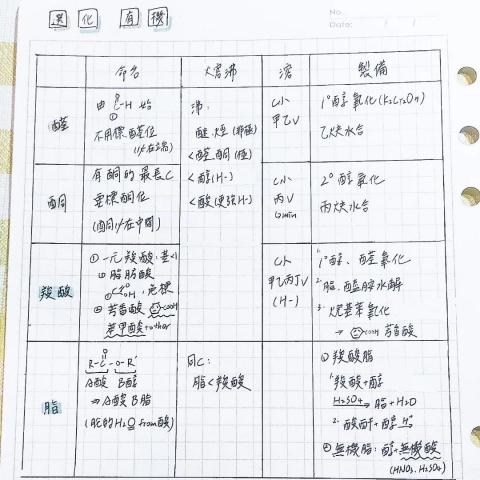 選 化 有 機
No.
Date: / /
命名
熔沸
溶
製備
醛
由 O
C-H 始
①
不用標醛位
(必在端)
沸:
醚.烴(非極)
<醛.酮(極)
<醇(H-)
<酸(更強H-)
C小
甲乙V
1°醇氧化(K₂Cr₂O₇)
乙炔水合
酮
有酮的最長C
要標酮位
(酮必在中間)
C小
丙V
2°醇氧化
丙炔水合
羧酸
①一元羧酸:
②芳香酸 COOH
苯甲酸+other
C小
甲乙丙丁V
(H-)
1. 1°醇、醛氧化
2. 脂、醯胺水解
3. 烷基苯氧化
→ COOH 芳香酸
脂
O
R-C-O-R'
A酸 B醇
⇒A酸B脂
(脫的H₂O from酸)
同C:
脂<羧酸
①羧酸脂
1. 羧酸+醇
H₂SO₄→ 脂+H₂O
2. 酸酐+醇 H⁺
②無機脂:醇+無機酸
(HNO₃.H₂SO₄)